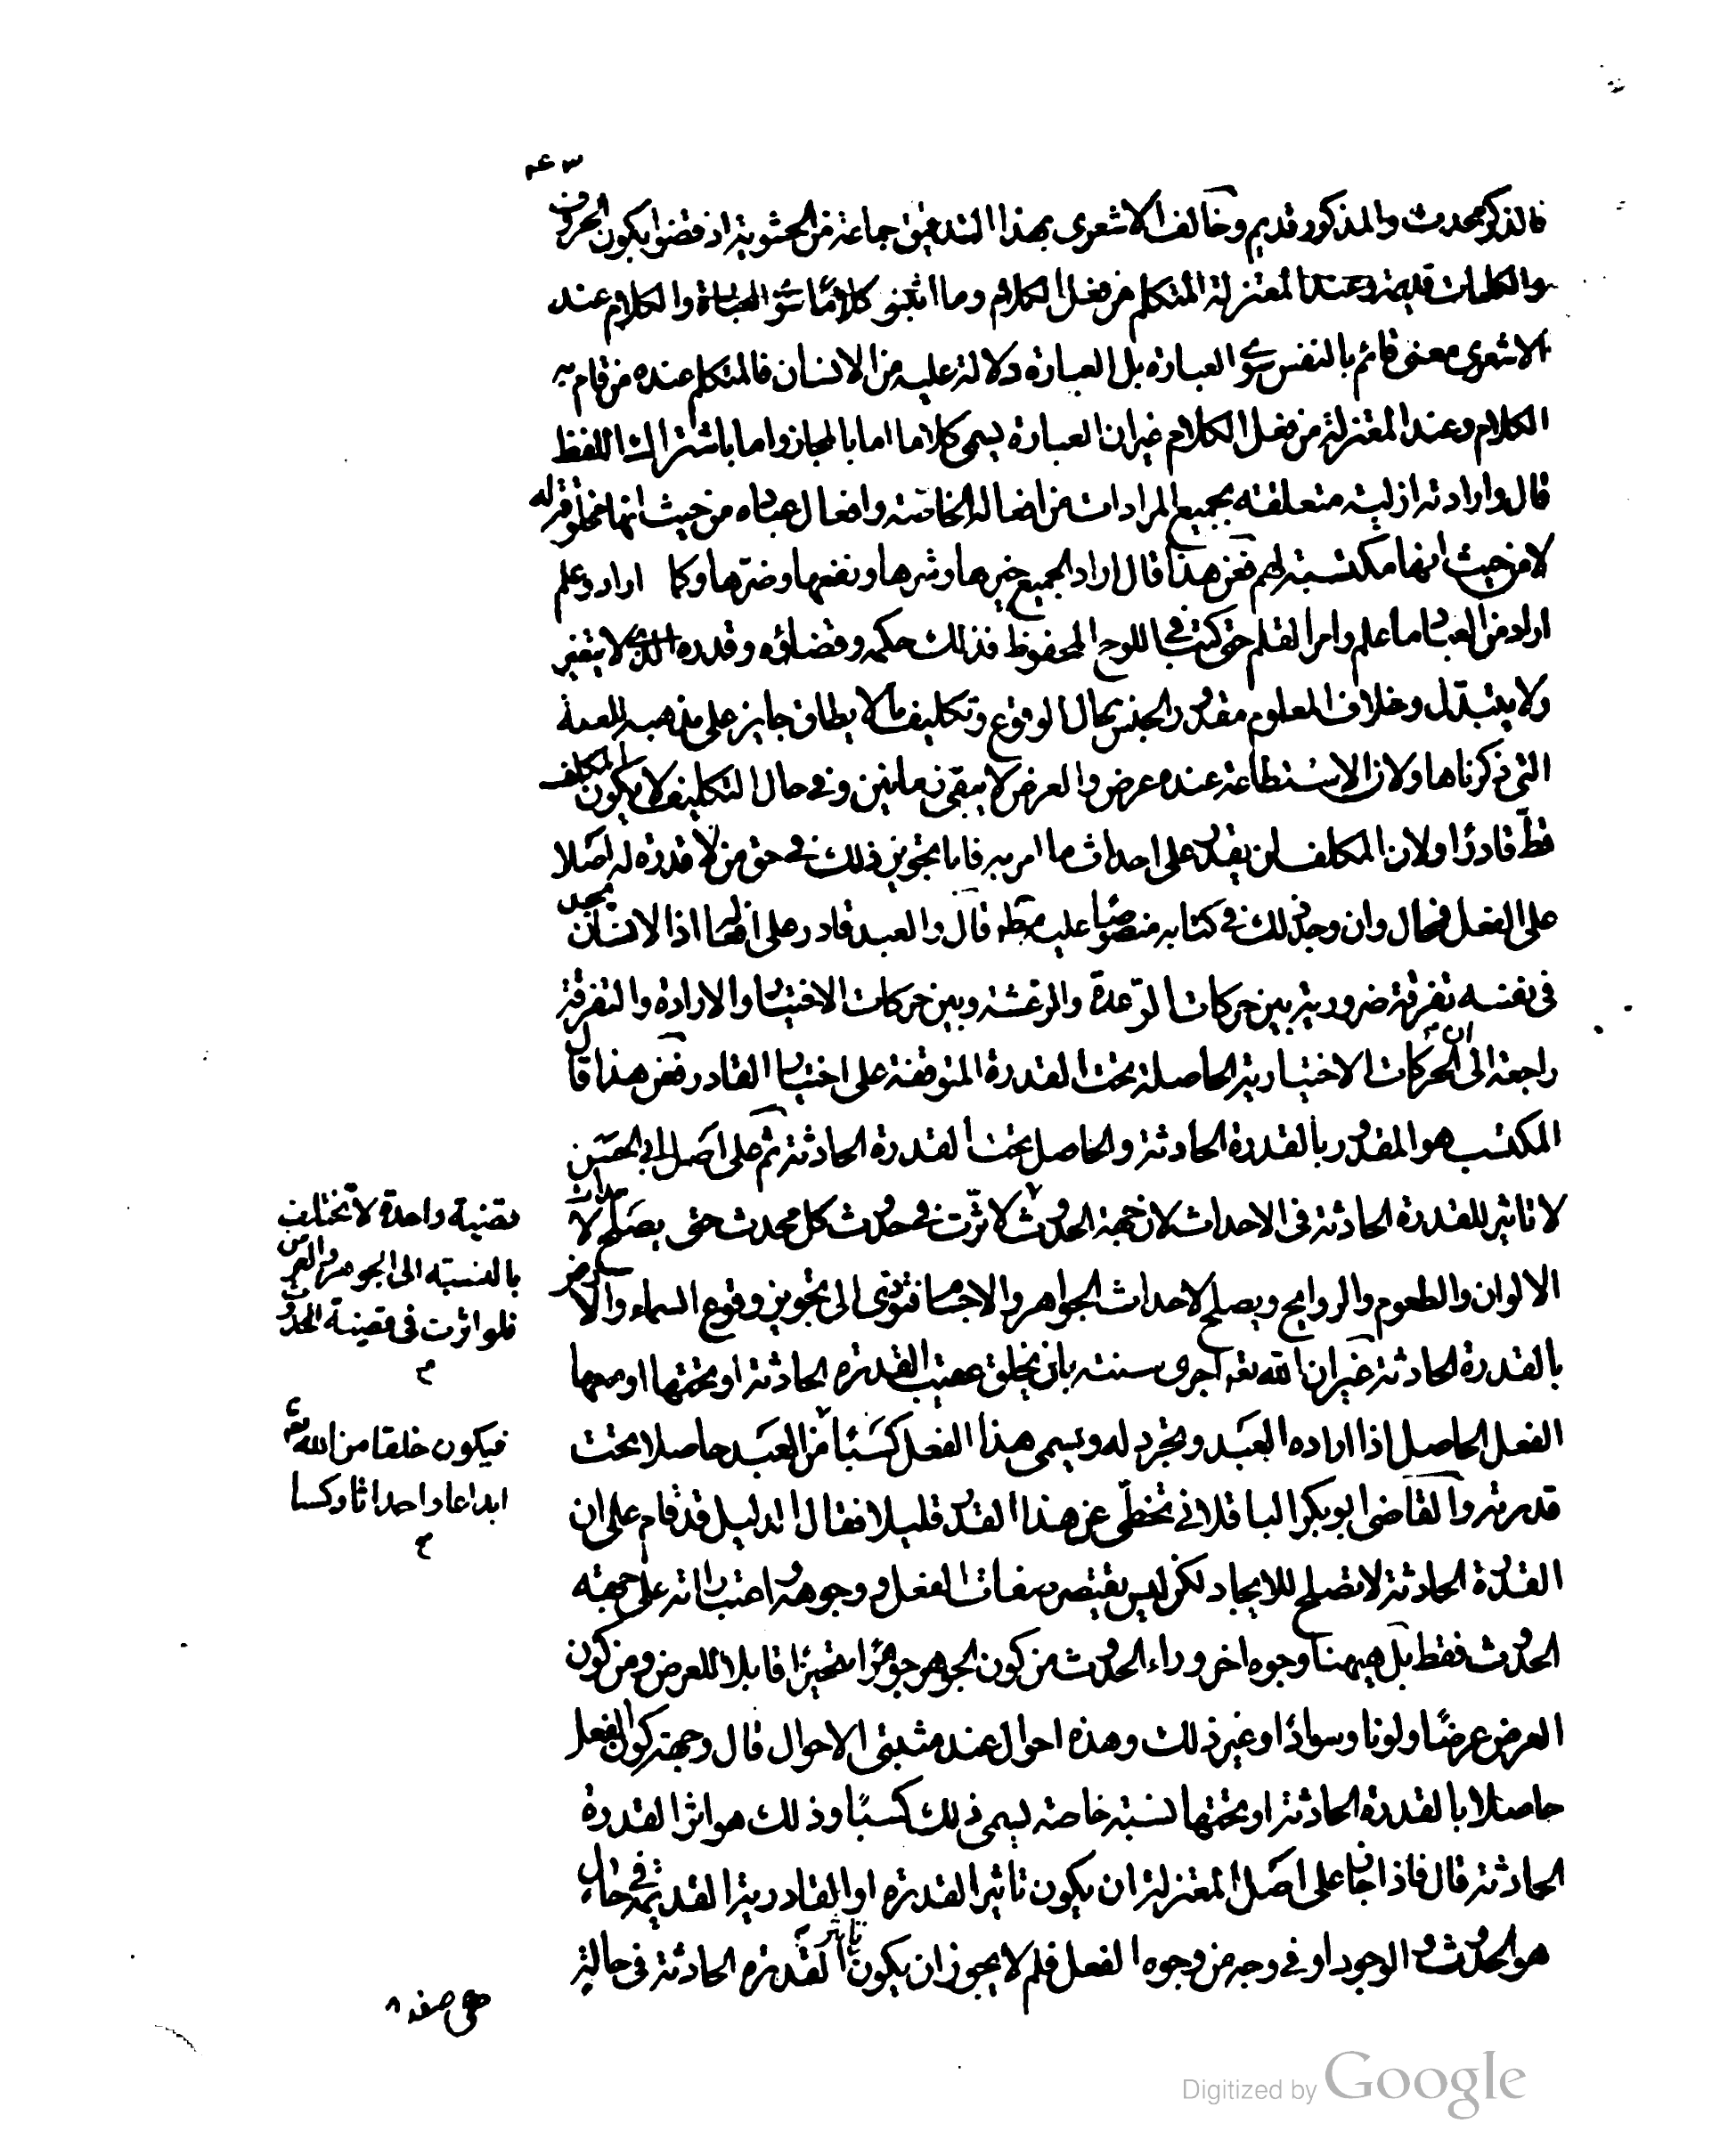 فالذكر محدث والمذكور قديم وخالف الاشعرى بهذا التدقيق جماعة من الحشوية اذ قضوا بكون الحروف
والكلمات قديمة وعند المعتزلة المتكلم من فعل الكلام وما اثبتو كلامًا سوى العبارة والكلام عند
الاشعرى معنى قائم بالنفس سوى العبارة بل العبارة دلالة عليه من الانسان فالمتكلم عنده من قام به
الكلام وعند المعتزلة من فعل الكلام غير ان العبارة يسمى كلاما اما بالمجاز واما باشتراك اللفظ
قال وارادته ازلية متعلقة بجميع المرادات من افعاله الخاصة وافعال عباده من حيث انها مخلوقة له
لا من حيث انها مكتسبة لهم فعن هذا قال اراد الجميع خيرها وشرها ونفعها وضرها وكما اراد وعلم
اراد من العباد ما علم وامر القلم حتى كتب في اللوح المحفوظ فذلك حكمه وقضاؤه وقدره الذى لا يتغير
ولا يتبدل وخلاف المعلوم مقدور الجنس محال الوقوع وتكليف ما لا يطاق جايز على مذهبه للعلة
التى ذكرناها ولان الاستطاعة عنده عرض والعرض لا يبقى زمانين وفى حال التكليف لا يكون المكلف
قطّ قادرًا ولان المكلف لن يقدر على احداث ما امر به فاما تجويز ذلك فى حق من لا قدرة له اصلا
على الفعل فمحال وان وجد ذلك فى كتابه منصوصا عليه قال والعبد قادر على افعاله اذا الانسان يجد
فى نفسه تفرقة ضرورية بين حركات الرعدة والرعشة وبين حركات الاختيار والارادة والتفرقة
راجعة الى ان الحركات الاختيارية الحاصلة تحت القدرة المتوقفة على اختيار القادر فعن هذا قال
المكتسب هو المقدور بالقدرة الحادثة والحاصل تحت القدرة الحادثة ثم على اصل ابى الحسن
لا تاثير للقدرة الحادثة فى الاحداث لان جهة الحدوث لاثرت فى حدوث كل محدث حتى يصلح لاحداث
الالوان والطعوم والروايح ويصلح لاحداث الجواهر والاجسام فتؤدى الى تجويز وقوع السماء والارض
بالقدرة الحادثة غير ان الله تعه اجرى سنته بان يخلق عقيب القدرة الحادثة او تحتها او معها
الفعل الحاصل اذا اراده العبد وتجرد له ويسمى هذا الفعل كسبًا من العبد حاصلا تحت
قدرته والقاضى ابوبكر الباقلانى تخطّى عن هذا القدر قليلا فقال الدليل قد قام على ان
القدرة الحادثة لا تصلح للايجاد لكن ليس يقتصر صفات الفعل ووجوهه واعتباراته على جهته
الحدوث فقط بل هيهنا وجوه اخر وراء الحدوث من كون الجوهر جوهرًا متحيزًا قابلا للعرض ومن كون
العرض عرضًا ولونا وسوادًا وغير ذلك وهذه احوال عند مثبتى الاحوال قال وجهة كون الفعل
حاصلا بالقدرة الحادثة او تحتها نسبة خاصة يسمى ذلك كسبًا وذلك هو اثر القدرة
الحادثة قال فاذا جاز على اصل المعتزلة ان يكون تاثير القدرة او القادرية القديمة فى حال
هو الحدوث والوجود او فى وجه من وجوه الفعل فلم لا يجوز ان يكون تاثير القدرة الحادثة فى حالة
قضية واحدة لا تختلف
بالنسبة الى الجوهر والعرض
فلو اثرت فى قضية الحدوث
فيكون خلقا من الله تع
ابداعا واحداثا وكسبا
Digitized by Google